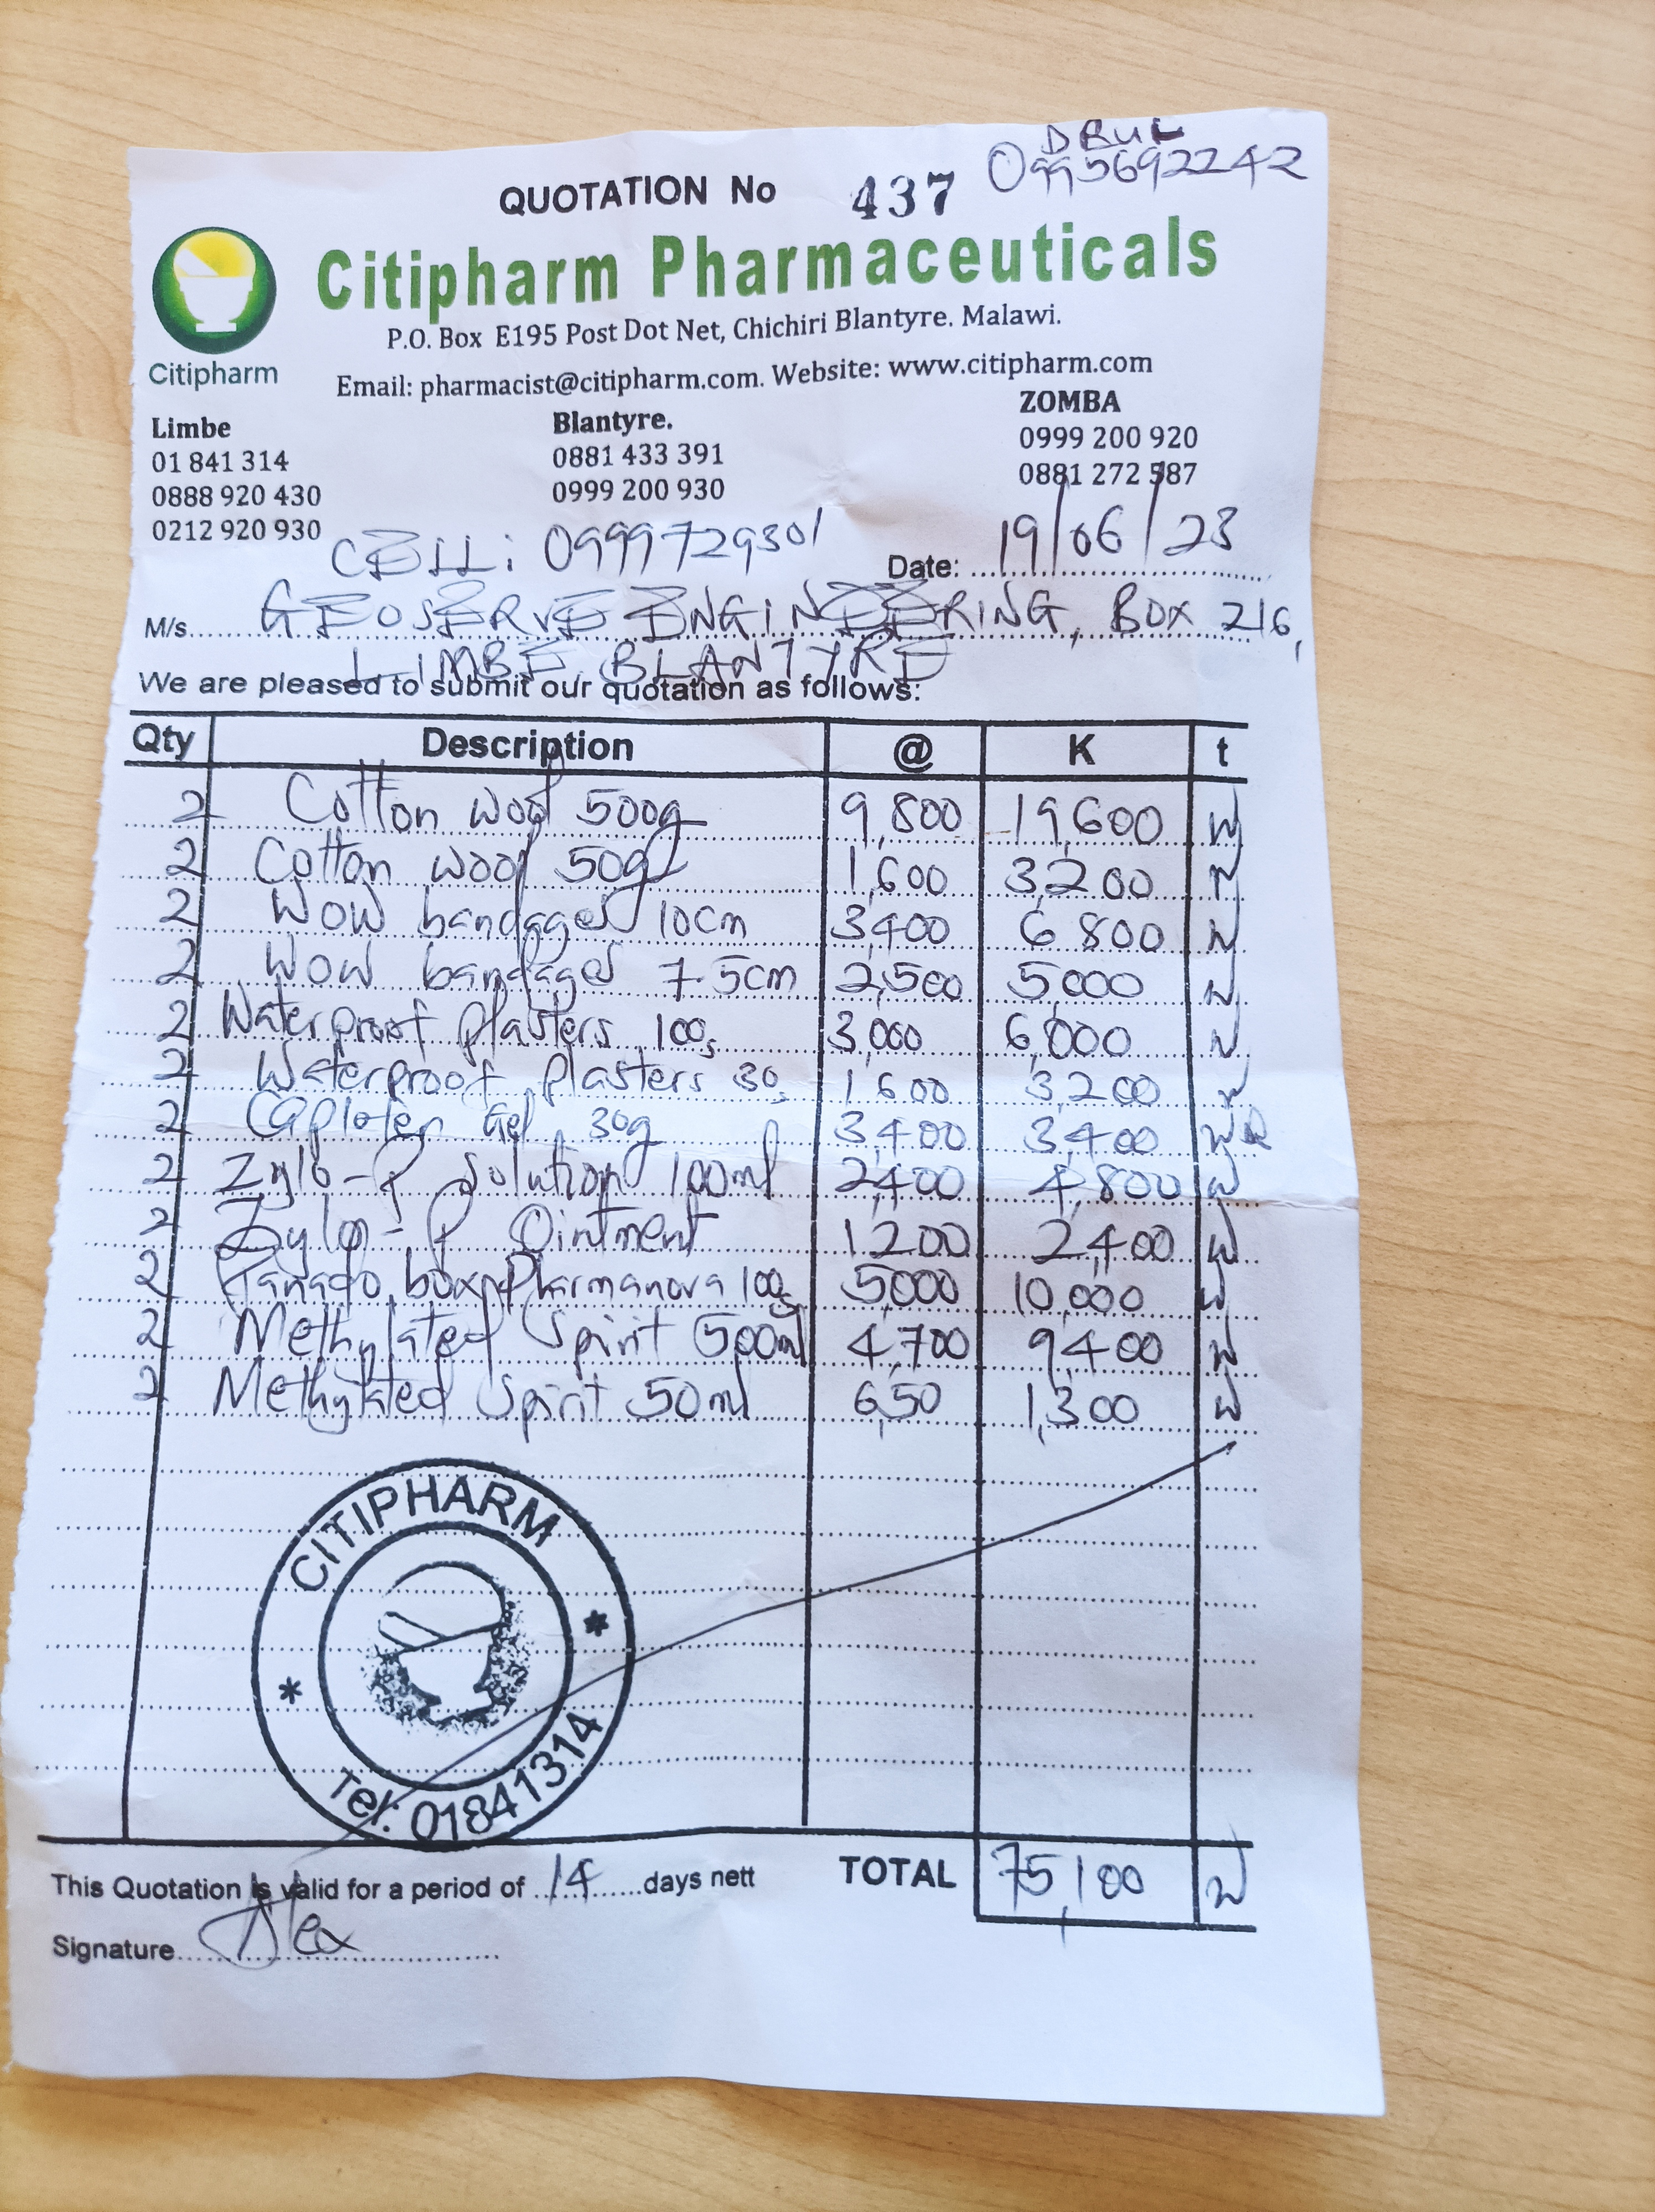 DRUL
0995692242
QUOTATION No 437
Citipharm Pharmaceuticals
Citipharm
P.O. Box E195 Post Dot Net, Chichiri Blantyre. Malawi.
Email: pharmacist@citipharm.com. Website: www.citipharm.com
Limbe
01 841 314
0888 920 430
0212 920 930
Blantyre.
0881 433 391
0999 200 930
ZOMBA
0999 200 920
0881 272 587
CELL: 0999729301
Date: 19/06/23
M/s GEOSERVE ENGINEERING, BOX 216,
LIMBE, BLANTYRE
We are pleased to submit our quotation as follows:
Qty Description @ K t
2 Cotton wool 500g 9,800 19,600
2 Cotton wool 50g 1,600 3,200
2 WOW bandages 10cm 3,400 6 800
2 WOW bandages 7.5cm 2,500 5000
2 Waterproof Plasters 100s 3,000 6,000
2 Waterproof Plasters 30s 1,600 3,200
2 Gel 30g 3,400 3,400
2 Zylo-P Solution 100ml 2,400 4,800
2 Zylo-P Ointment 1200 2,400
2 Panado box Pharmanova 100s 5000 10,000
2 Methylated Spirit 500ml 4,700 9,400
2 Methylated Spirit 50ml 650 1,300
CITIPHARM
Tel: 01841314
This Quotation is valid for a period of 14 days nett TOTAL 75,100
Signature Alex